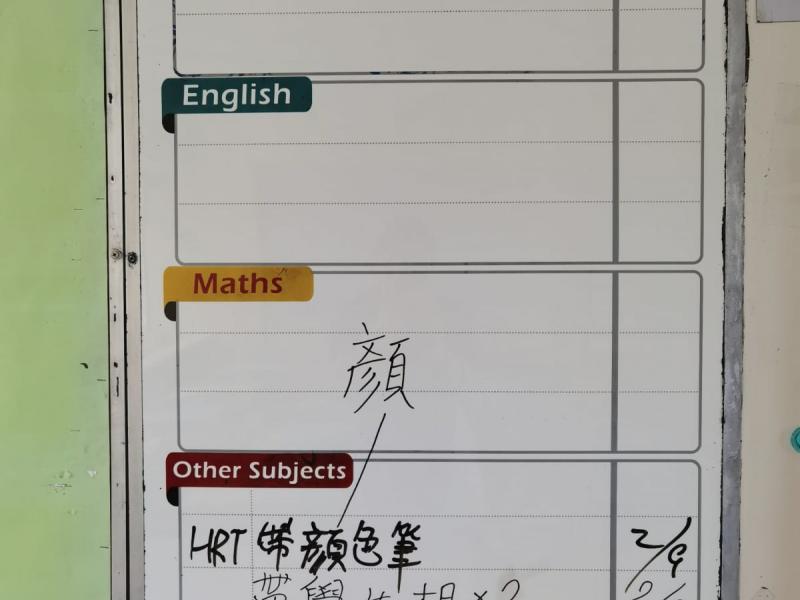 English
Maths
顏
Other Subjects
HRT 帶顏色筆 2/9
帶學生相×2 2/